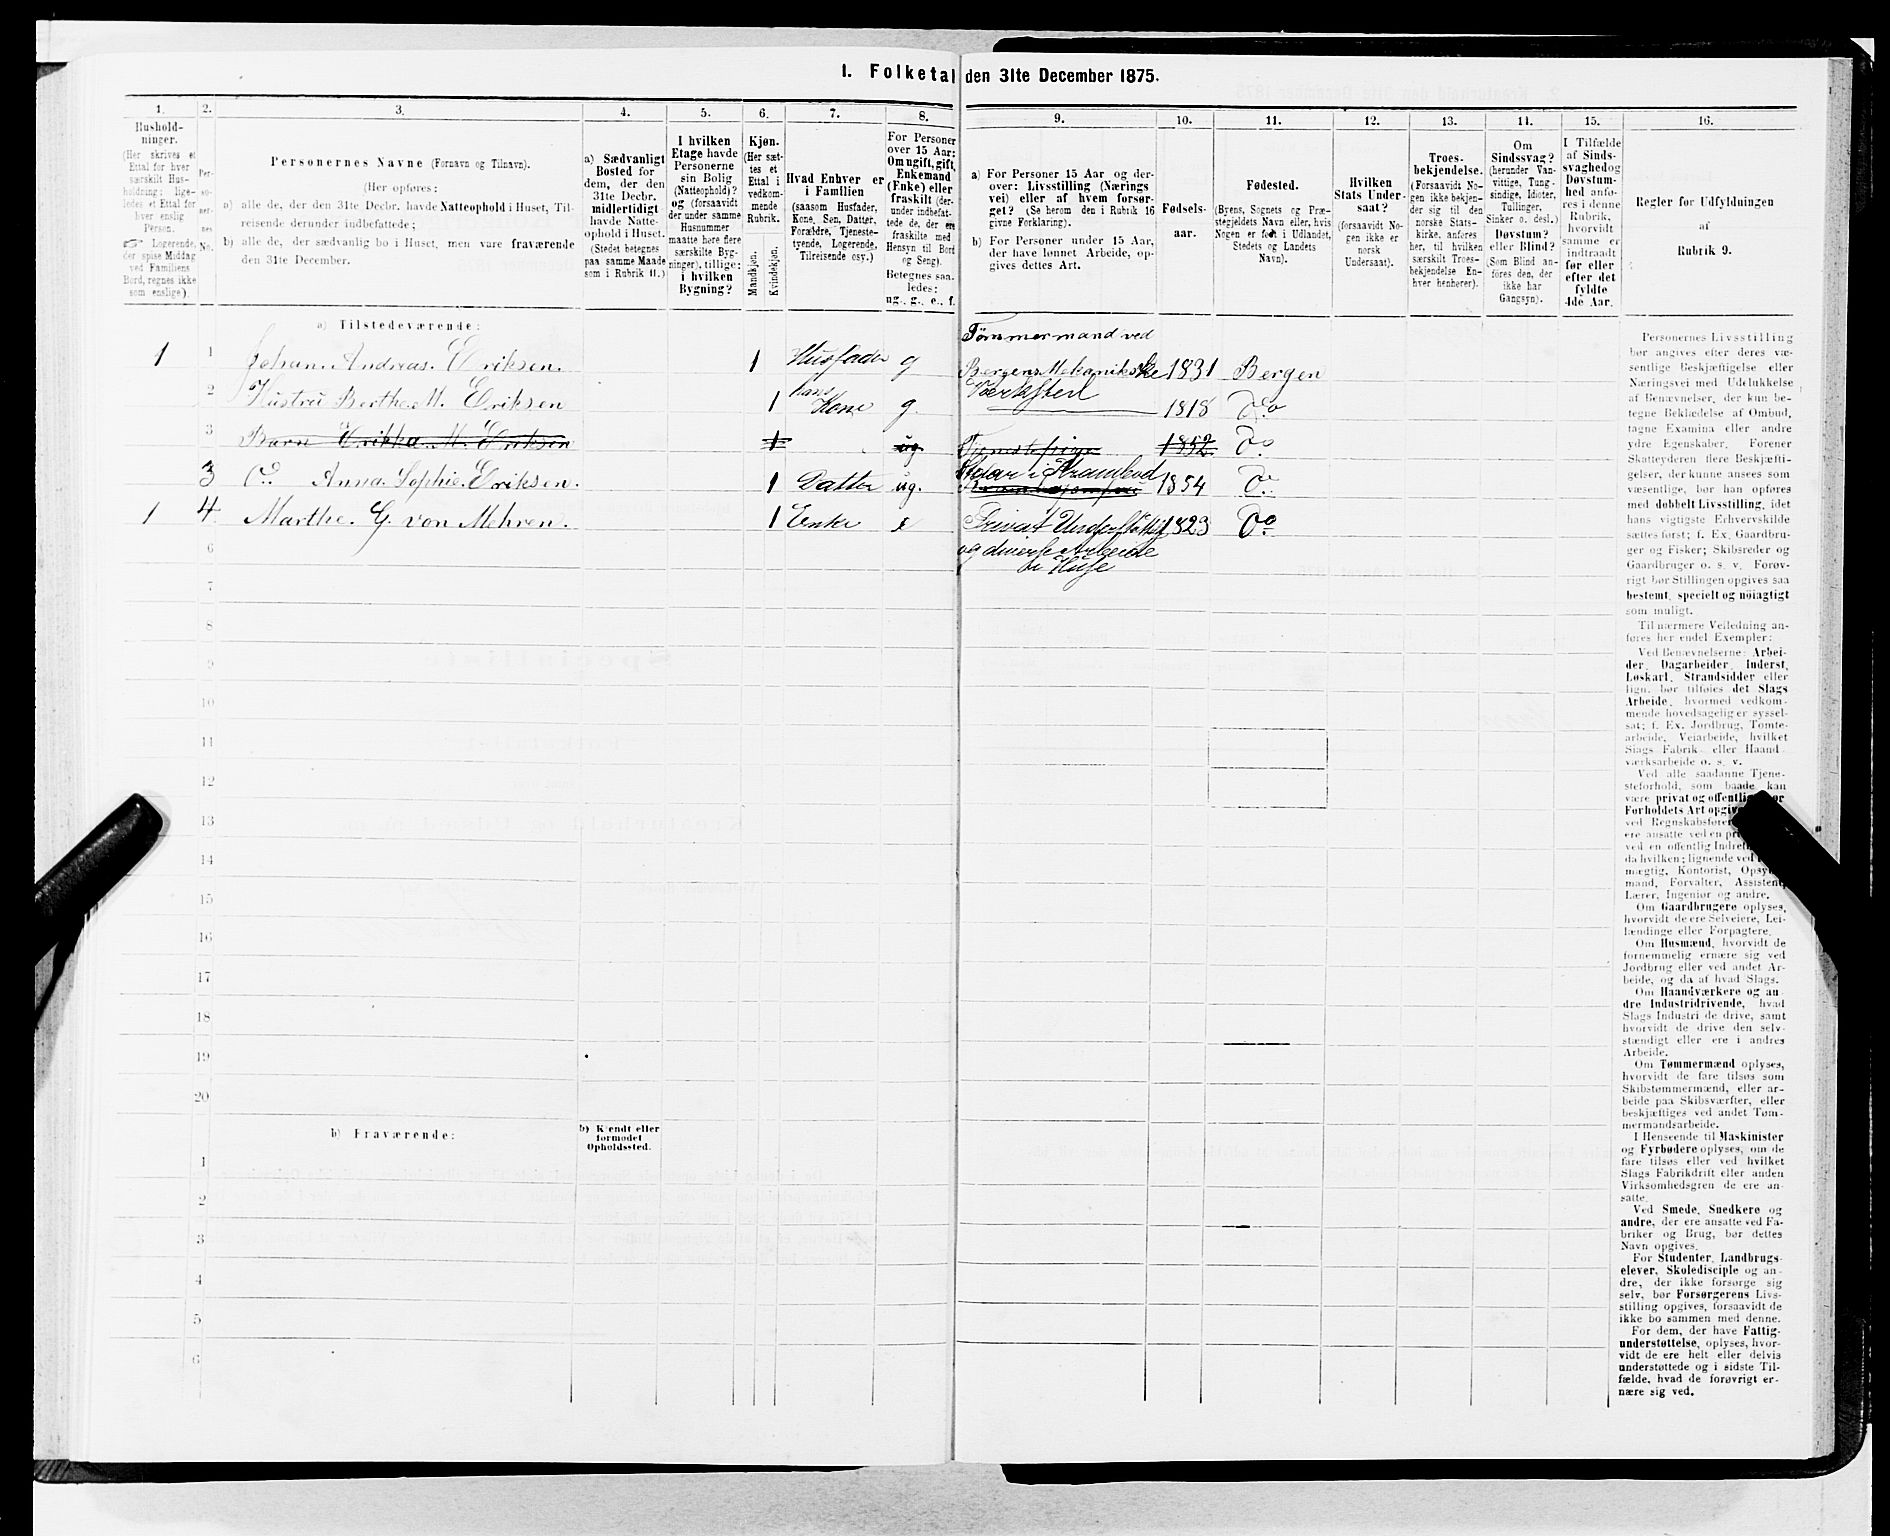 I. Folketal den 31te December 1875.
1.
Hushold-
ninger.
(Her skrives et
Ettal for hver
særskilt Hus-
holdning; lige-
ledes et Ettal for
hver enslig
Person.
Logerende,
der spise Middag
ved Familiens
Bord, regnes ikke
som enslige).
2.
Per-
so-
ner-
nes
No.
3.
Personernes Navne (Fornavn og Tilnavn).
(Her opføres:
a) alle de, der den 31te Decbr. havde Natteophold i Huset, Til-
reisende derunder indbefattede;
b) alle de, der sædvanlig bo i Huset, men vare fraværende
den 31te December.
4.
a) Sædvanligt
Bosted for
dem, der den
31te Decbr.
midlertidigt
havde Natte-
ophold i Huset.
(Stedet betegnes
paa samme Maade
som i Rubrik 11.)
5.
I hvilken
Etage havde
Personerne
sin Bolig
(Natteophold)?
og (forsaavidt
der under samme
Husnummer
maatte høre flere
særskilte Byg-
ninger), tillige:
i hvilken
Bygning?
6.
Kjøn.
(Her sæt-
tes et
Ettal i
vedkom-
mende
Rubrik.
Mandkjøn.
Kvindekjøn.
7.
Hvad Enhver er
i Familien
(saasom Husfader,
Kone, Søn, Datter,
Forældre, Tjeneste-
tyende, Logerende,
Tilreisende osv.)
8.
For Personer
over 15 Aar:
Om ugift, gift,
Enkemand
(Enke) eller
fraskilt (der-
under indbefat-
tede de, der ere
fraskilte med
Hensyn til Bord
og Seng).
Betegnes saa-
ledes:
ug., g., e., f.
9.
a) For Personer 15 Aar og der-
over: Livsstilling (Nærings
vei) eller af hvem forsør-
get? (Se herom den i Rubrik 16
givne Forklaring).
b) For Personer under 15 Aar,
der have lønnet Arbeide, op-
gives dettes Art.
10.
Fødsels-
aar.
11.
Fødested.
(Byens, Sognets og Præ-
stegjeldets Navn eller, hvis
Nogen er født i Udlandet,
Stedets og Landets
Navn).
12.
Hvilken
Stats Under-
saat?
(forsaavidt No-
gen ikke er
norsk
Undersaat).
13.
Troes-
bekjendelse.
(Forsaavidt No-
gen ikke bekjen-
der sig til den
norske Stats-
kirke, anføres
her, til hvilken
særskilt Troes-
bekjendelse En-
hver henhører).
14.
Om
Sindssvag?
(herunder Van-
vittige, Tung-
sindige, Idioter,
Tullinger,
Sinker o. desl.)
Døvstum?
eller Blind?
(Som Blind an-
føres den, der
ikke har
Gangsyn).
15.
I Tilfælde
af Sinds-
svaghed og
Døvstum-
hed anfø-
res i denne
Rubrik,
hvorvidt
samme er
indtraadt
før eller
efter det
fyldte
4de Aar.
16.
Regler for Udfyldningen
af
Rubrik 9.
a) Tilstedeværende:
1 1 Johan Andreas Eriksen. 1 Husfader g Tømmermand ved Bergens Mekaniske Værksted 1831 Bergen
2 Hustru Berthe M. Eriksen 1 hans Kone g. 1818 Do
3 Barn Erikka M. Eriksen 1 ug Tjenestepige 1852 Do
3 Do Anna Sophie Eriksen. 1 Datter ug. 1854 Do
1 4 Marthe G. von Mehren. 1 Enke e Privat Understøttet 1823 Do
og diverse Arbeide
i Huse
6
7
8
9
10
11
12
13
14
15
16
17
18
19
20
b) Fraværende:
b) Kjendt eller
formodet
Opholdssted.
1
2
3
4
5
6
Personernes Livsstilling
bør angives efter deres væ-
sentlige Beskjæftigelse eller
Næringsvei med Udelukkelse
af Benævnelser, der kun be-
tegne Beklædelse af Ombud,
tagne Examina eller andre
ydre Egenskaber. Forener
Skatteyderen flere Beskjæfti-
gelser, der kunne ansees som
væsentlige, bør han opføres
med dobbelt Livsstilling, idet
hans vigtigste Erhvervskilde
sættes først; f. Ex. Gaardbru-
ger og Fisker; Skibsreder og
Gaardbruger o. s. v. Forøv-
rigt bør Stillingen opgives saa
bestemt, specielt og nøiagtigt
som muligt.
Til nærmere Veiledning an-
føres her endel Exempler:
Ved Benævnelserne: Arbei-
der, Dagarbeider, Inderst,
Løskarl, Strandsidder eller
lign. bør tilføies det Slags
Arbeide, hvormed vedkom-
mende hovedsagelig er syssel-
sat; f. Ex. Jordbrug, Tomte-
arbeide, Veiarbeide, hvilket
Slags Fabrik- eller Haand-
værksarbeide o. s. v.
Ved alle saadanne Tjene-
steforhold, som baade kan
være privat og offentlig, bør
Forholdets Art opgives
ved Regnskabsfører
ere ansatte ved en
ved en offentlig
da hvilken; lignende ved
mægtig, Kontorist, Opsyns-
mand, Forvalter, Assistent,
Lærer, Ingeniør og andre.
Om Gaardbrugere oplyses,
hvorvidt de ere Selveiere, Lei-
lændinge eller Forpagtere.
Om Husmænd, hvorvidt de
fornemmelig ernære sig ved
Jordbrug eller ved andet Ar-
beide, og da af hvad Slags.
Om Haandværkere og an-
dre Industridrivende, hvad
Slags Industri de drive, samt
hvorvidt de drive den selv-
stændigt eller ere i andres
Arbeide.
Om Tømmermænd oplyses,
hvorvidt de fare tilsøs som
Skibstømmermænd, eller ar-
beide paa Skibsværfter, eller
beskjæftiges ved andet Tøm-
mermandsarbeide.
I Henseende til Maskinister
og Fyrbødere oplyses, om de
fare tilsøs eller ved hvilket
Slags Fabrikdrift eller anden
Virksomhedsgren de ere an-
satte.
Ved Smede, Snedkere og
andre, der ere ansatte ved Fa-
briker og Brug, bør dettes
Navn opgives.
For Studenter, Landbrugs-
elever, Skoledisciple og an-
dre, der ikke forsørge sig
selv, bør Forsørgerens Livs-
stilling opgives, forsaavidt de
ikke bo sammen med denne.
For dem, der have Fattig-
understøttelse, oplyses, hvor-
vidt de ere helt eller delvis
understøttede og i sidste Til-
fælde, hvad de forøvrigt er-
nære sig ved.